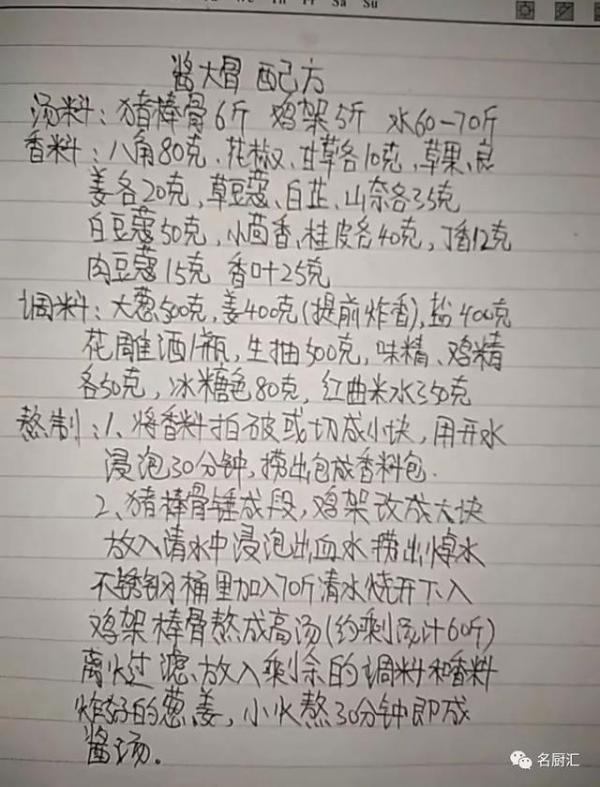 Fr Sa Su
酱大骨 配方
汤料：猪棒骨6斤 鸡架5斤 水60-70斤
香料：八角80克、花椒、甘草各10克，草果、良
姜各20克，草豆蔻、白芷、山奈各35克
白豆蔻50克，小茴香、桂皮各40克，丁香12克
肉豆蔻15克 香叶25克
调料：大葱500克，姜400克(提前炸香)，盐400克
花雕酒1瓶，生抽500克，味精、鸡精
各50克，冰糖色80克，红曲米水350克
熬制：1、将香料拍破或切成小块，用开水
浸泡30分钟，捞出包成香料包.
2、猪棒骨锤成段，鸡架改成大块
放入清水中浸泡出血水捞出焯水
不锈钢桶里加入70斤清水烧开下入
鸡架棒骨熬成高汤(约剩汤汁60斤)
离火过滤、放入剩余的调料和香料
炸好的葱姜，小火熬30分钟即成
酱汤。
名厨汇